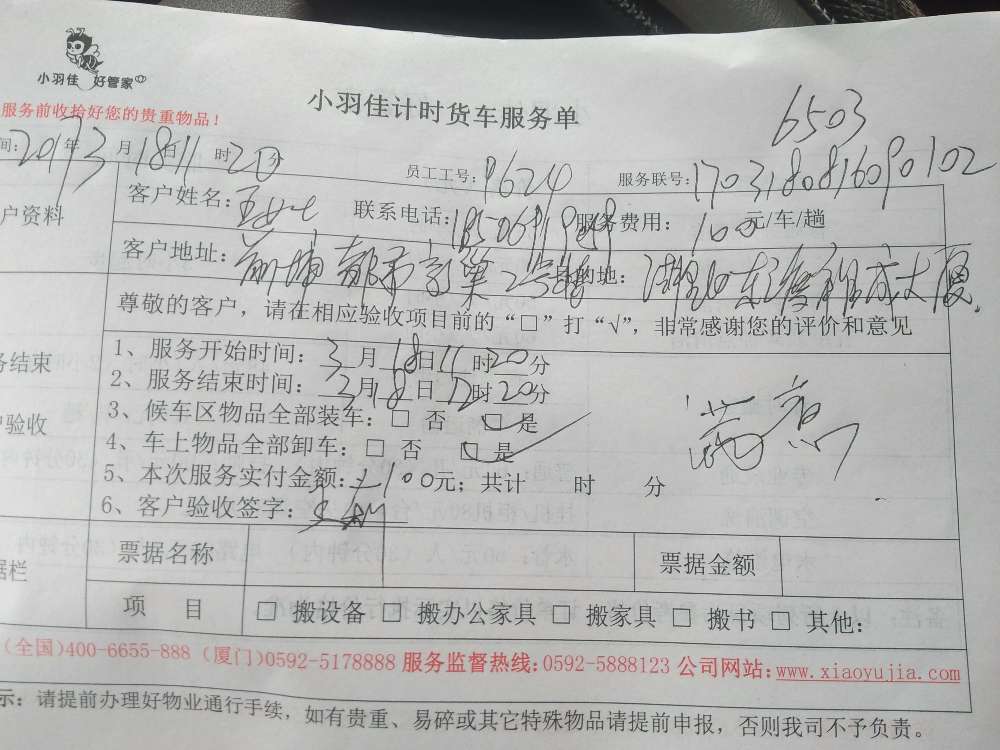 小羽佳 好管家
小羽佳计时货车服务单
6503
服务前收拾好您的贵重物品！
间：2017年3月18日11时20分
员工工号：9624 服务联号：170318081609 0102
户资料 客户姓名：王女士 联系电话： 服务费用：100元/车/趟
客户地址：前埔 都市 2号 目的地：湖里 大厦
尊敬的客户，请在相应验收项目前的“□”打“√”，非常感谢您的评价和意见
务结束
户验收
1、服务开始时间：3月18日11时20分
2、服务结束时间：3月18日12时20分
3、候车区物品全部装车：□ 否 □ 是
4、车上物品全部卸车：□ 否 □ 是
5、本次服务实付金额：100元；共计 时 分
6、客户验收签字：
满意
据栏 票据名称 票据金额
项 目 □ 搬设备 □ 搬办公家具 □ 搬家具 □ 搬书 □ 其他：
(全国)400-6655-888 (厦门)0592-5178888 服务监督热线：0592-5888123 公司网站：www.xiaoyujia.com
示：请提前办理好物业通行手续，如有贵重、易碎或其它特殊物品请提前申报，否则我司不予负责。